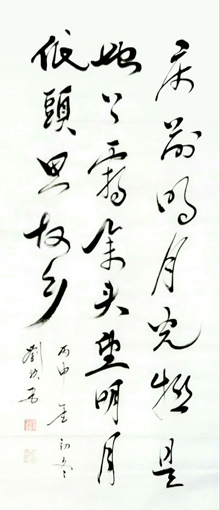 床前明月光疑是
地上霜舉头望明月
低頭思故乡
丙申初冬
劉